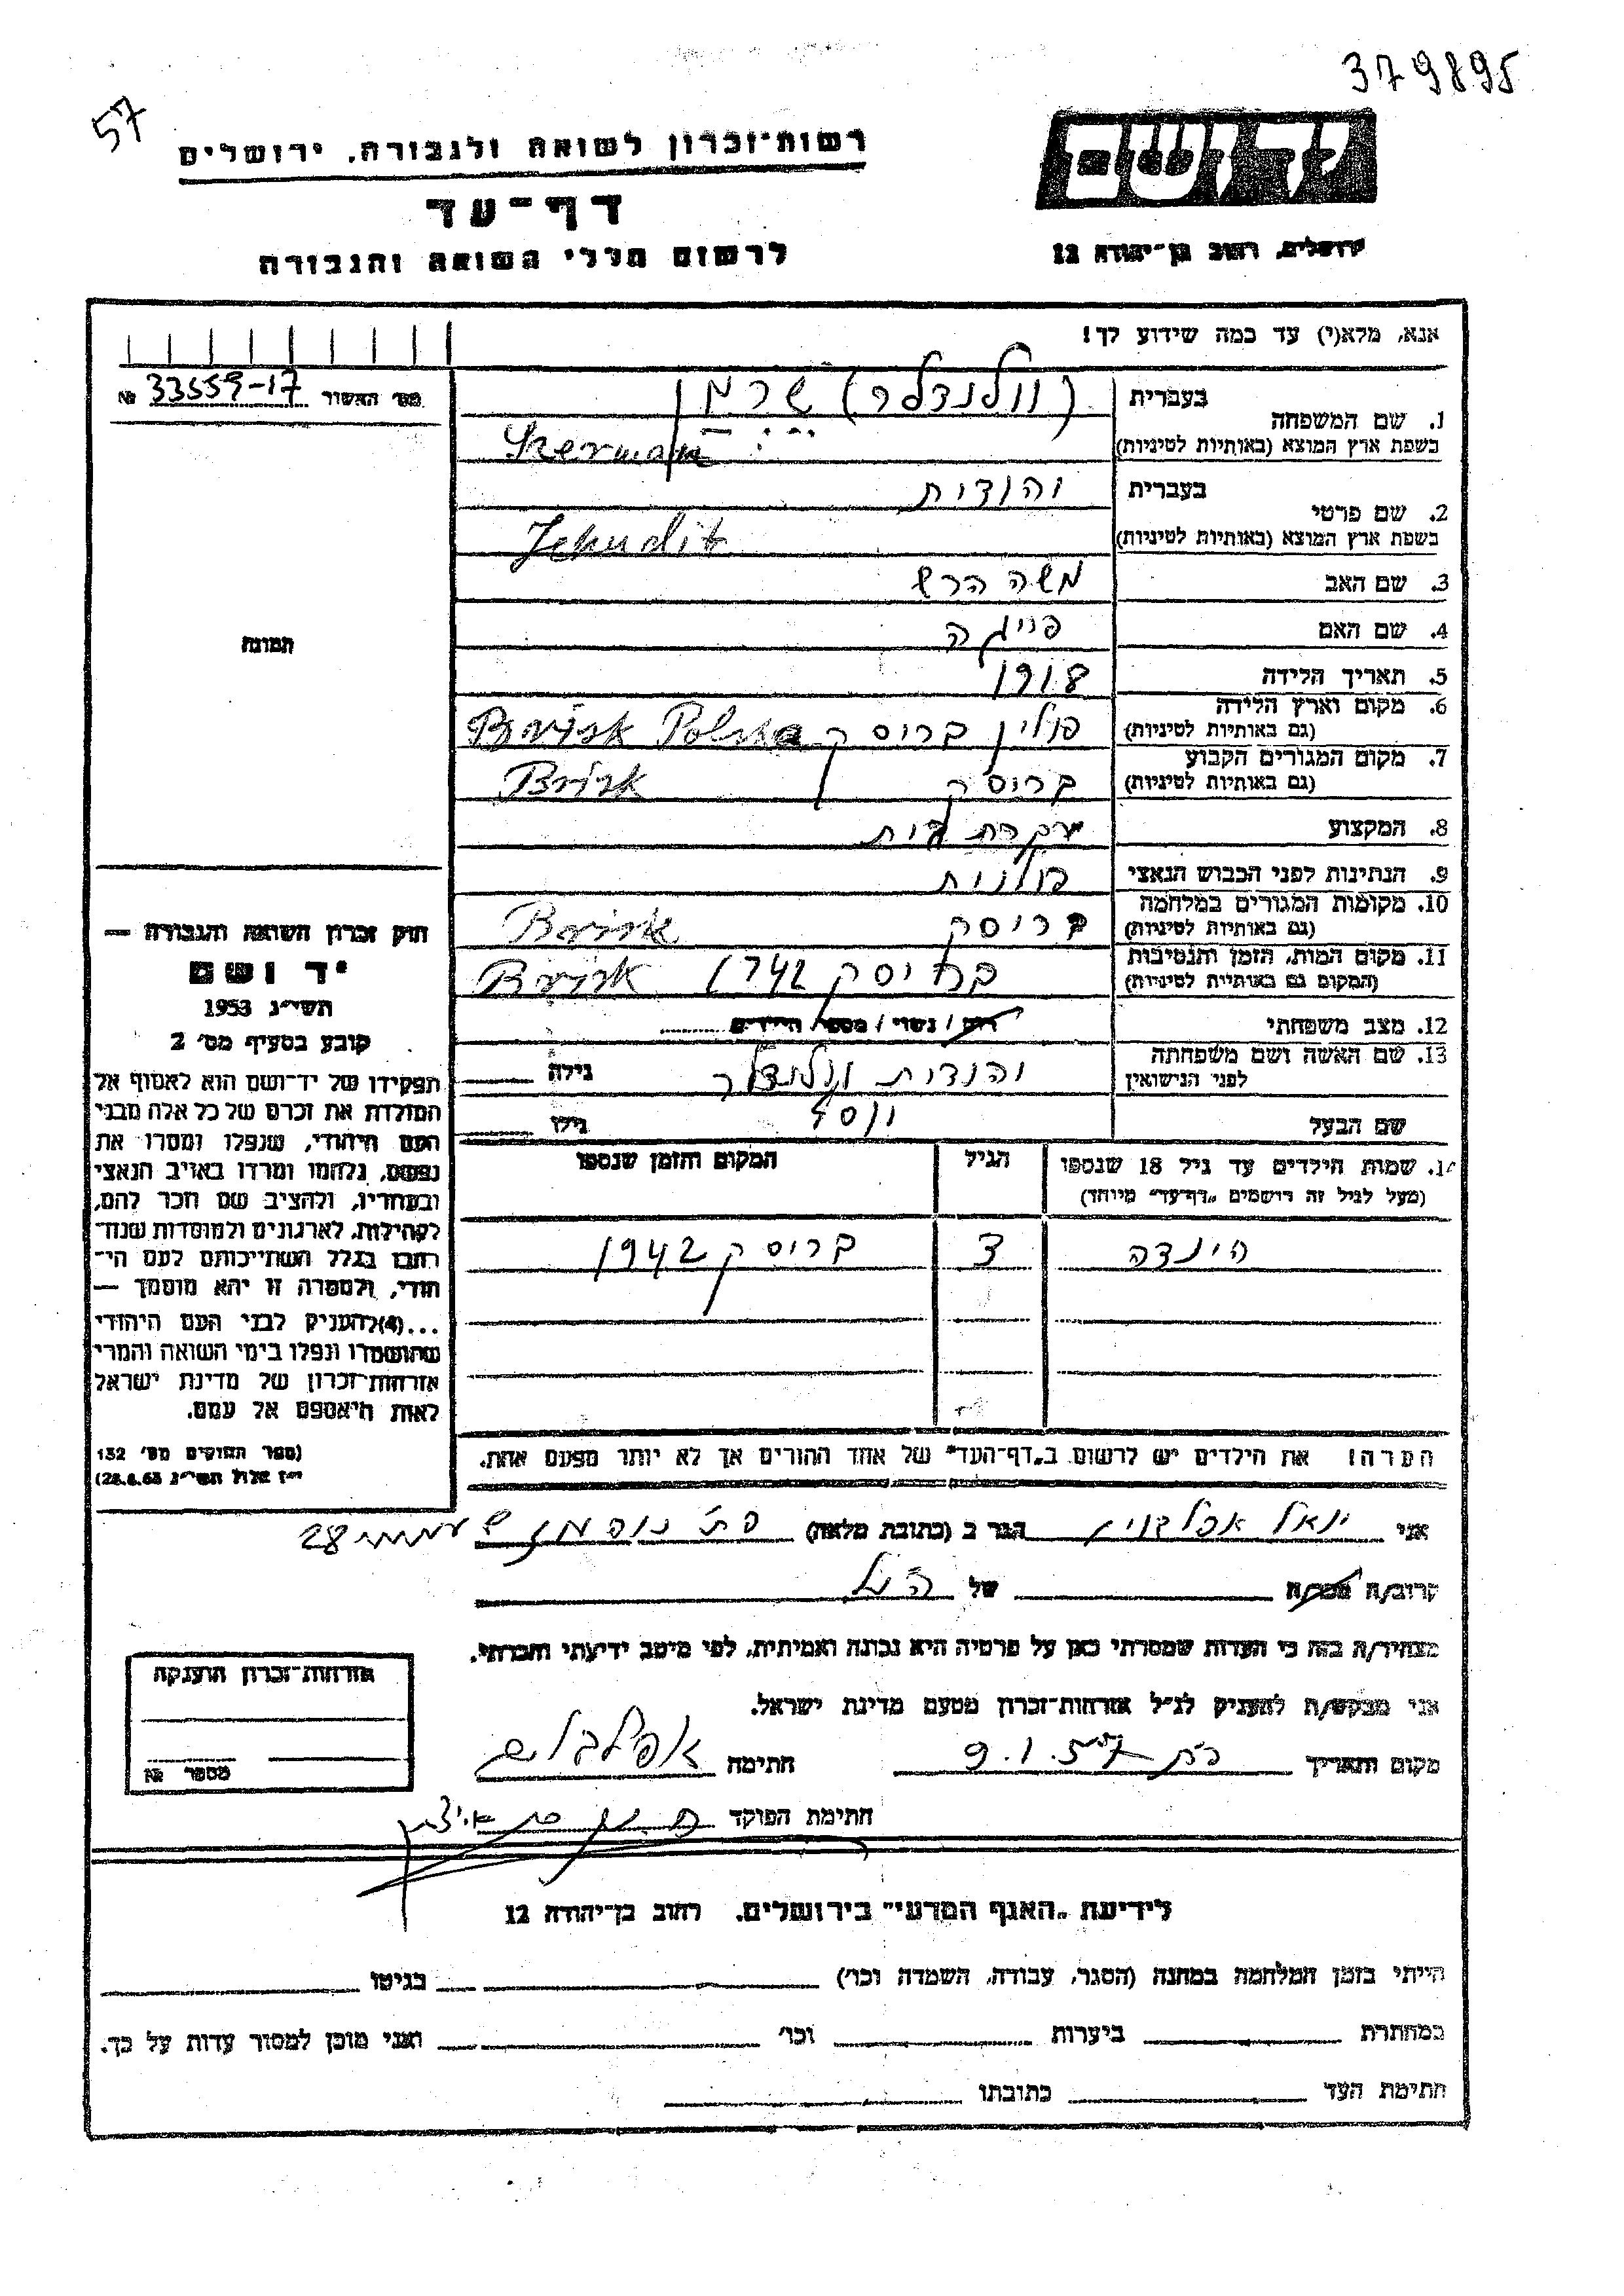 379895
57
יד ושם
רשות־זכרון לשואה ולגבורה, ירושלים
דף־עד
לרשום חללי השואה והגבורה
ירושלים, רחוב בן־יהודה 12
אנא, מלא(י) עד כמה שידוע לך!
מס׳ האשור 33559-17 №
1. שם המשפחה בעברית (וולנדלר) שרמן
בשפת ארץ המוצא (באותיות לטיניות) Szerman
2. שם פרטי בעברית יהודית
בשפת ארץ המוצא (באותיות לטיניות) Jehudit
3. שם האב משה הרש
4. שם האם פייגה
5. תאריך הלידה 1918
6. מקום וארץ הלידה (גם באותיות לטיניות) פולין בריסק Brisk Polska
7. מקום המגורים הקבוע (גם באותיות לטיניות) בריסק Brisk
8. המקצוע עקרת בית
9. הנתינות לפני הכבוש הנאצי פולנית
10. מקומות המגורים במלחמה (גם באותיות לטיניות) בריסק Brisk
11. מקום המות, הזמן והנסיבות (המקום גם באותיות לטיניות) בריסק 1942 Brisk
12. מצב משפחתי רוק / נשוי / מספר הילדים
13. שם האשה ושם משפחתה לפני הנישואין יהודית וולנדלר גילה
שם הבעל יוסף גילו
14. שמות הילדים עד גיל 18 שנספו הגיל המקום והזמן שנספו
(מעל לגיל זה רושמים "דף־עד" מיוחד)
הינדה 3 בריסק 1942
התמונה
חוק זכרון השואה והגבורה —
יד ושם
תשי״ג 1953
קובע בסעיף מס׳ 2
תפקידו של יד־ושם הוא לאסוף אל
המולדת את זכרם של כל אלה מבני
העם היהודי, שנפלו ומסרו את
נפשם, נלחמו ומרדו באויב הנאצי
ובעוזריו, ולהציב שם וזכר להם,
לקהילות, לארגונים ולמוסדות שנח־
רבו בגלל השתייכותם לעם הי־
הודי, ולמטרה זו יהא מוסמך —
...(4) להעניק לבני העם היהודי
שהושמדו ונפלו בימי השואה והמרי
אזרחות־זכרון של מדינת ישראל
לאות היאספם אל עמם.
(ספר החוקים מס׳ 132
י״ז אלול תשי״ג 28.8.53)
הערה! את הילדים יש לרשום ב"דף־העד" של אחד ההורים אך לא יותר מפעם אחת.
אני הגר ב (כתובת מלאה) 28
קרוב/ה מכר/ה של הנ״ל
מצהיר/ה בזה כי העדות שמסרתי כאן על פרטיה היא נכונה ואמיתית, לפי מיטב ידיעתי והכרתי.
אני מבקש/ת להעניק לנ״ל אזרחות־זכרון מטעם מדינת ישראל.
מקום ותאריך 9.1.57 חתימה
חתימת הפוקד
אזרחות־זכרון הוענקה
מספר №
לידיעת "האגף המדעי" בירושלים, רחוב בן־יהודה 12
הייתי בזמן המלחמה במחנה (הסגר, עבודה, השמדה וכו׳) בגיטו
במחתרת ביערות וכו׳ ואני מוכן למסור עדות על כך.
חתימת העד כתובתו